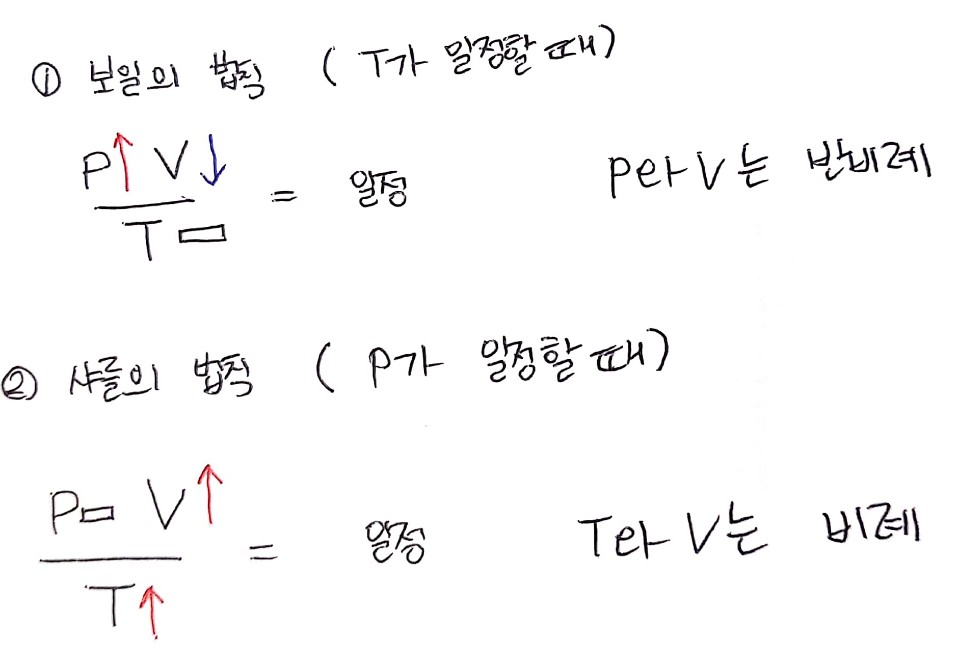 ① 보일의 법칙 ( T가 일정할 때 )
P↑ V↓
T▭
= 일정 P와 V는 반비례
② 샤를의 법칙 ( P가 일정할 때 )
P▭ V↑
T↑
= 일정 T와 V는 비례